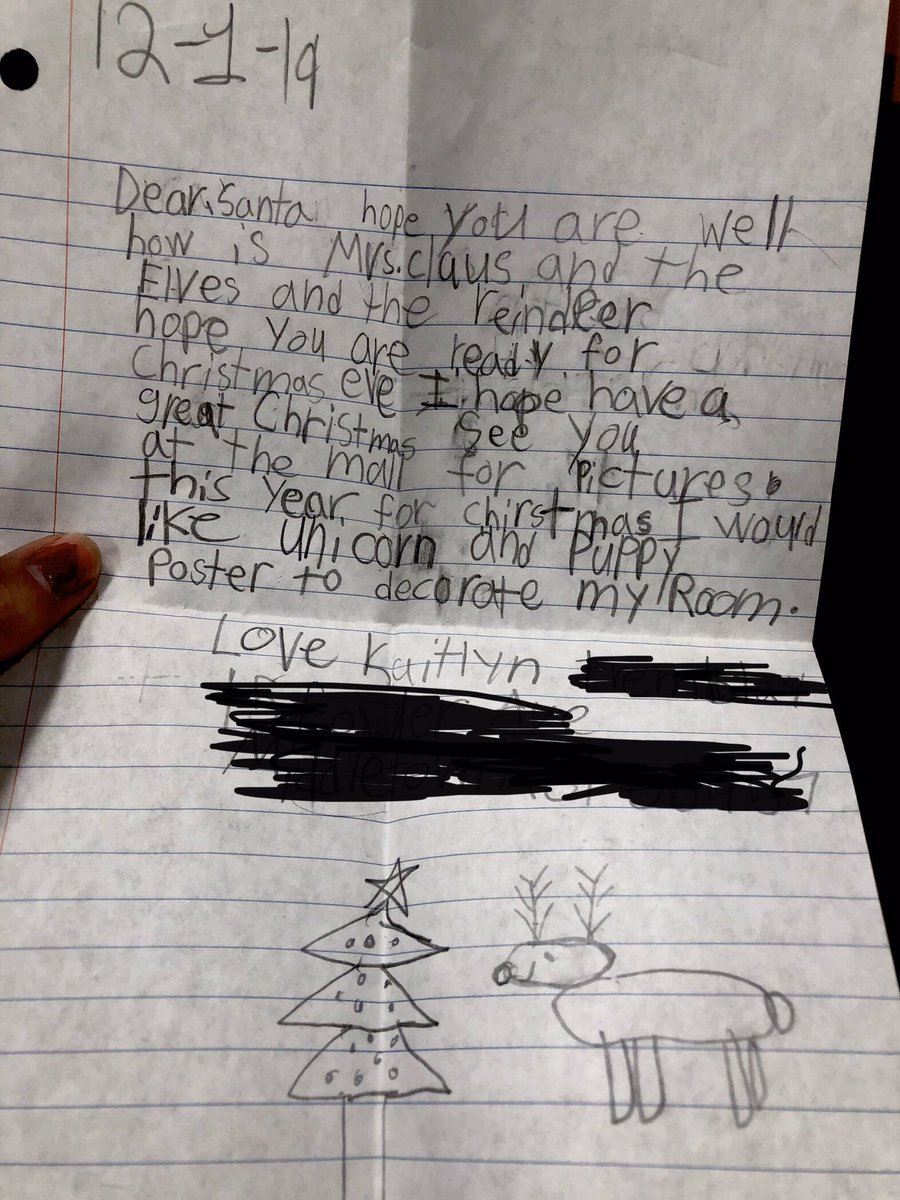 12-1-19
Dear, Santa hope you are well
how is Mrs. Claus and the
Elves and the reindeer
hope you are ready for
Christmas eve I hope have a
great Christmas See you
at the mall for Pictures.
this year for chirstmas I would
like unicorn and Puppy
Poster to decorate my Room.
Love Kaitlyn